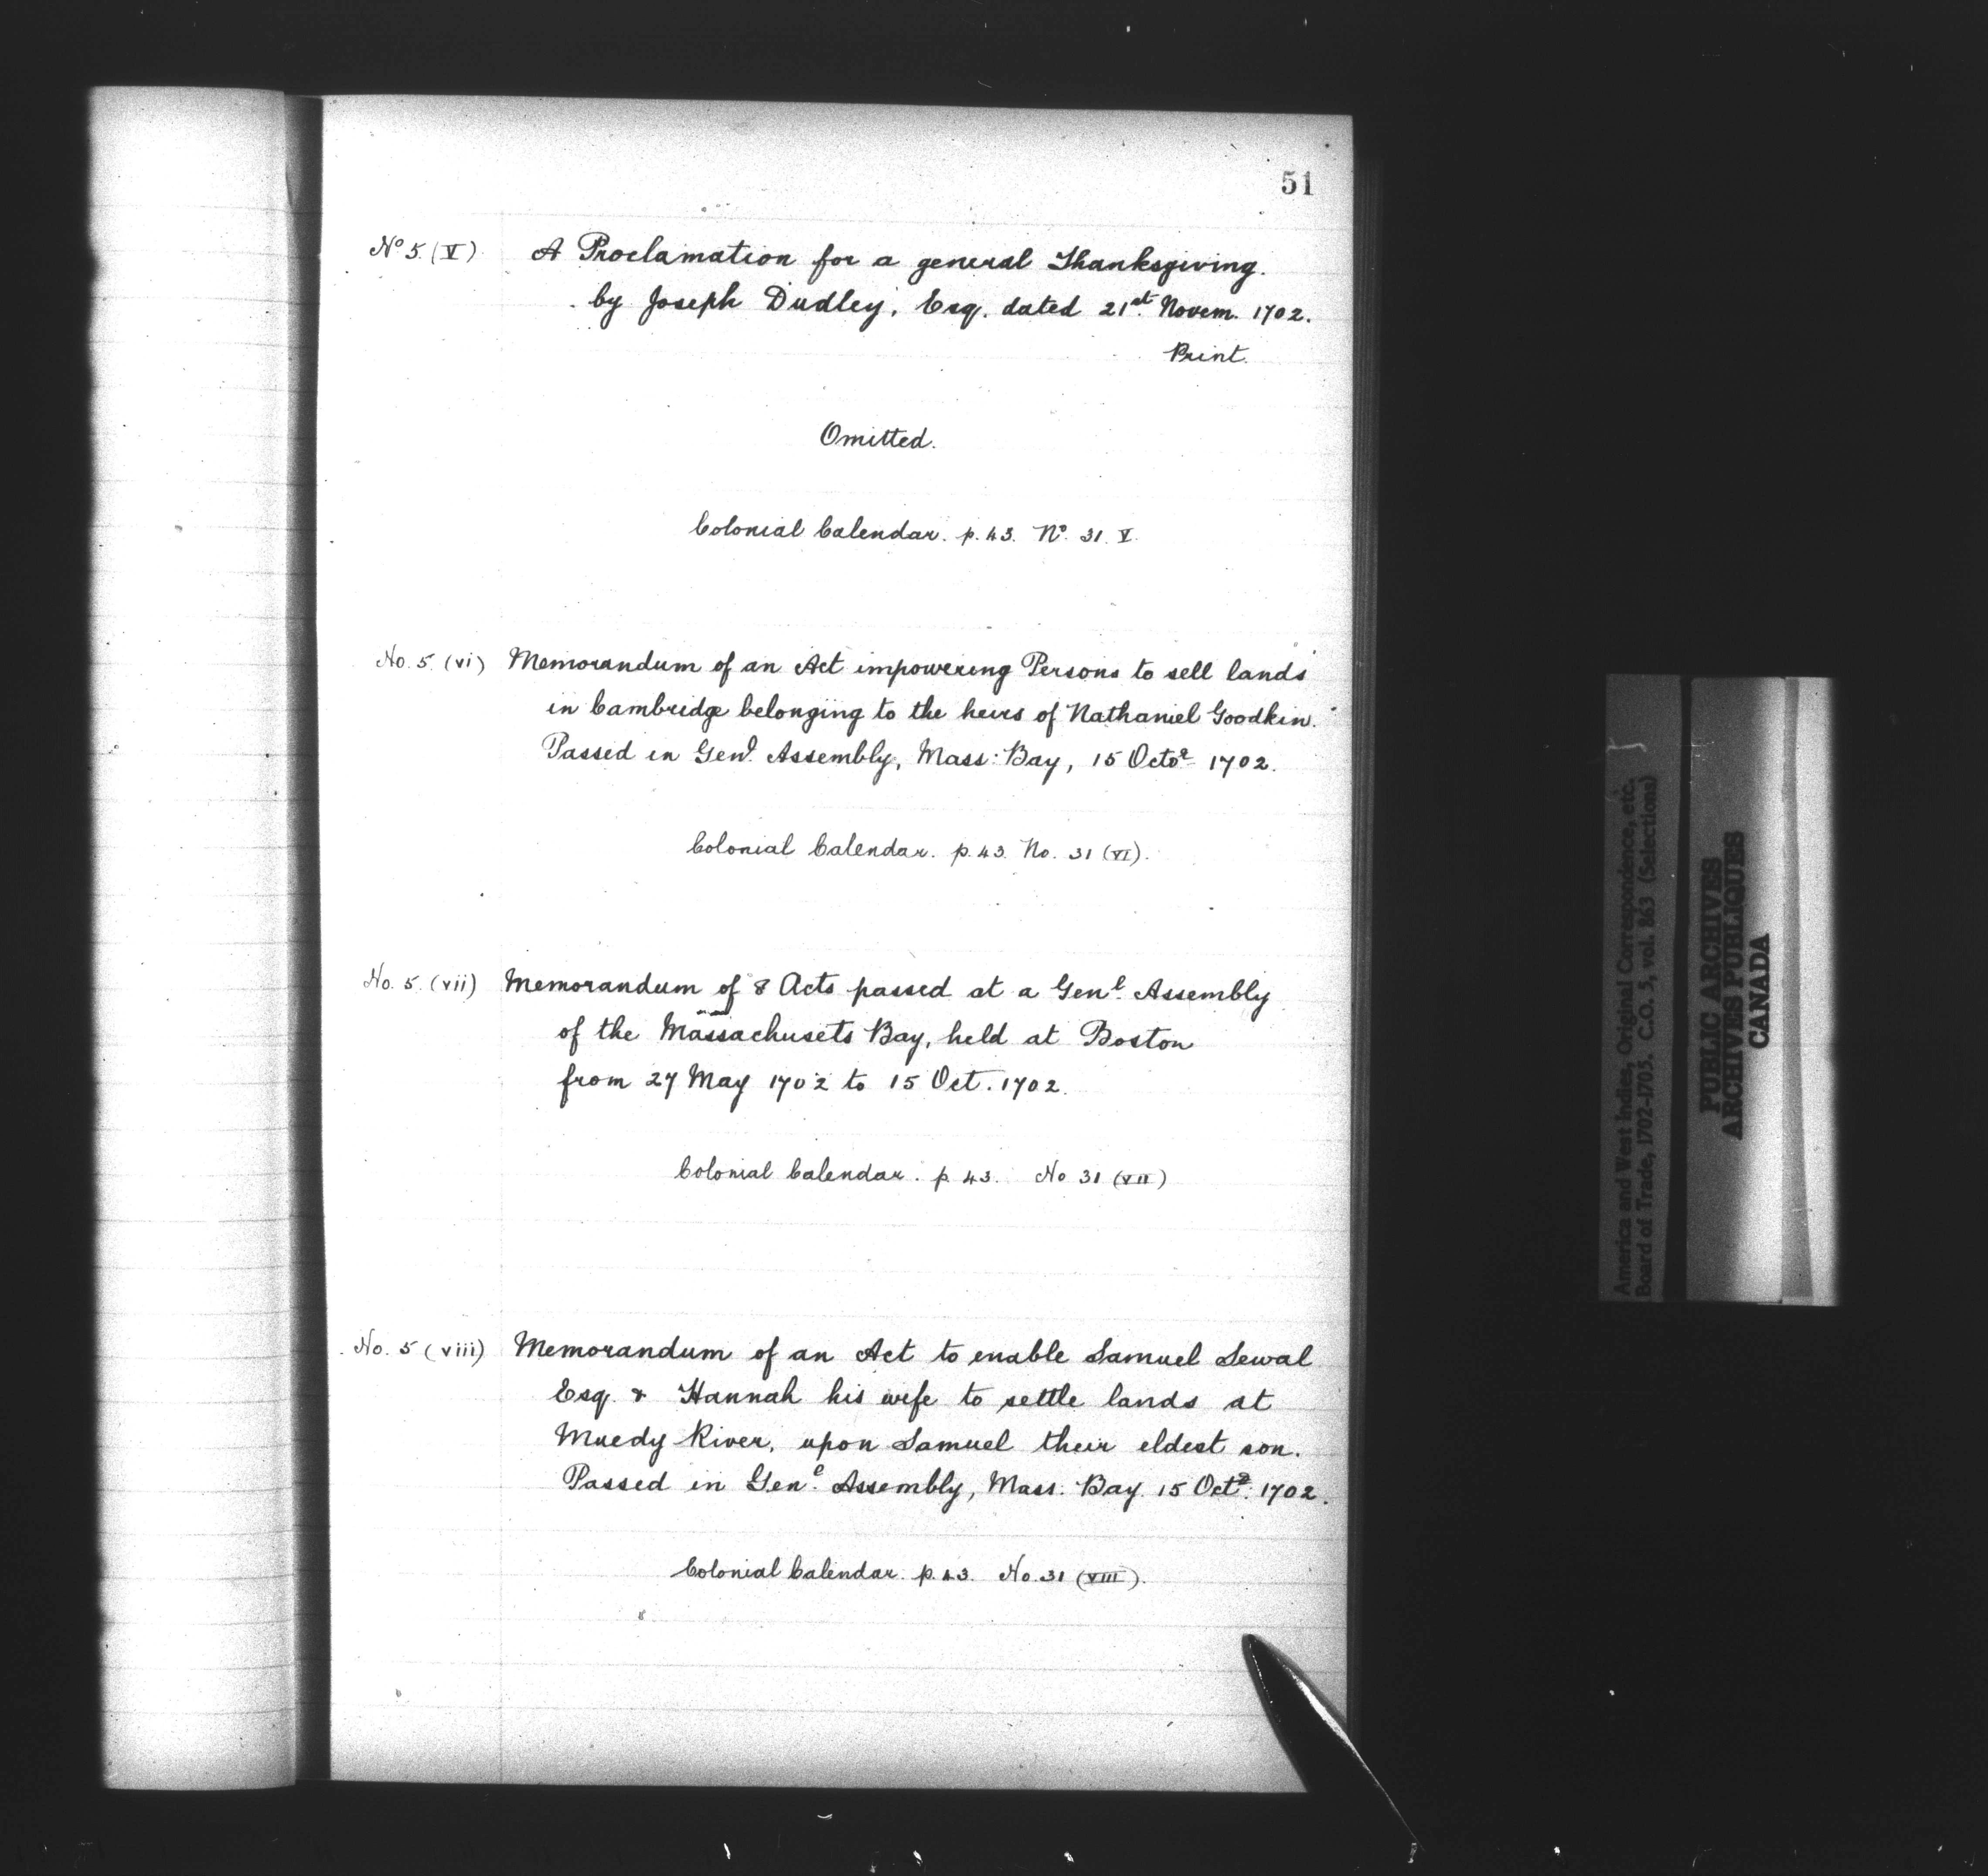 51
No 5. (V) A Proclamation for a general Thanksgiving.
by Joseph Dudley, Esq. dated 21st. Novem. 1702.
Print.
Omitted.
Colonial Calendar. p. 43. No. 31. V.
No. 5. (vi) Memorandum of an Act impowering Persons to sell lands
in Cambridge belonging to the heirs of Nathaniel Goodkin.
Passed in Genl. Assembly, Mass: Bay, 15 Octor 1702.
Colonial Calendar. p. 43. No. 31 (VI).
No. 5. (vii) Memorandum of 8 Acts passed at a Genl. Assembly
of the Massachusets Bay, held at Boston
from 27 May 1702 to 15 Oct. 1702.
Colonial Calendar. p. 43. No 31 (VII)
No. 5 (viii) Memorandum of an Act to enable Samuel Sewal
Esq. & Hannah his wife to settle lands at
Muedy River, upon Samuel their eldest son.
Passed in Genl. Assembly, Mass. Bay. 15 Octr. 1702.
Colonial Calendar. p. 43. No. 31 (VIII).
America and West Indies, Original Correspondence, etc.
Board of Trade, 1702-1705. C.O. 5, vol. 863 (Selections)
PUBLIC ARCHIVES
ARCHIVES PUBLIQUES
CANADA